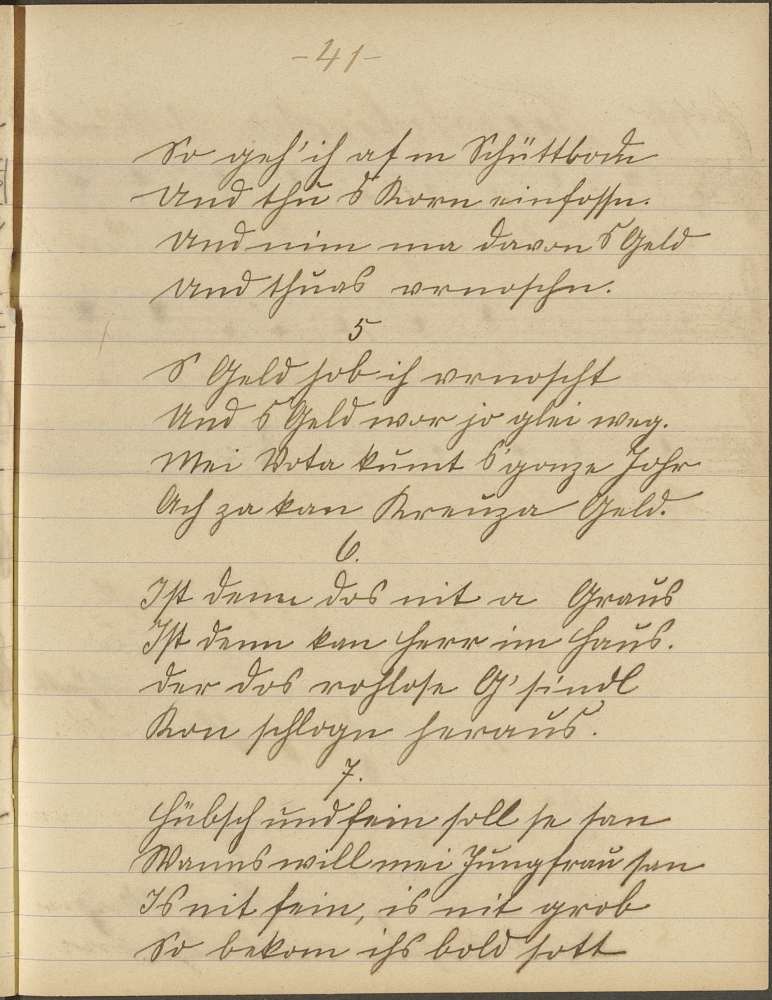 -41-
So geh' ich af'm Schüttbodn
Und thu s'Korn einfossn.
Und nim ma davon s'Geld
Und thuas vrnoschn.
5
S' Geld hob ich vrnoscht
Und s'Geld wor jo glei weg.
Mei Vota kumt s'gonze Johr
Ach za kan Kreuza Geld.
6.
Ist denn dos nit a Graus
Ist denn kan Herr im Haus.
Der dos rohlose G'sindl
Kon schlogn heraus.
7.
Hübsch und fein soll se san
Wanns will mei Jungfrau san
Is nit fein, is nit grob
So bekom ichs bold sott